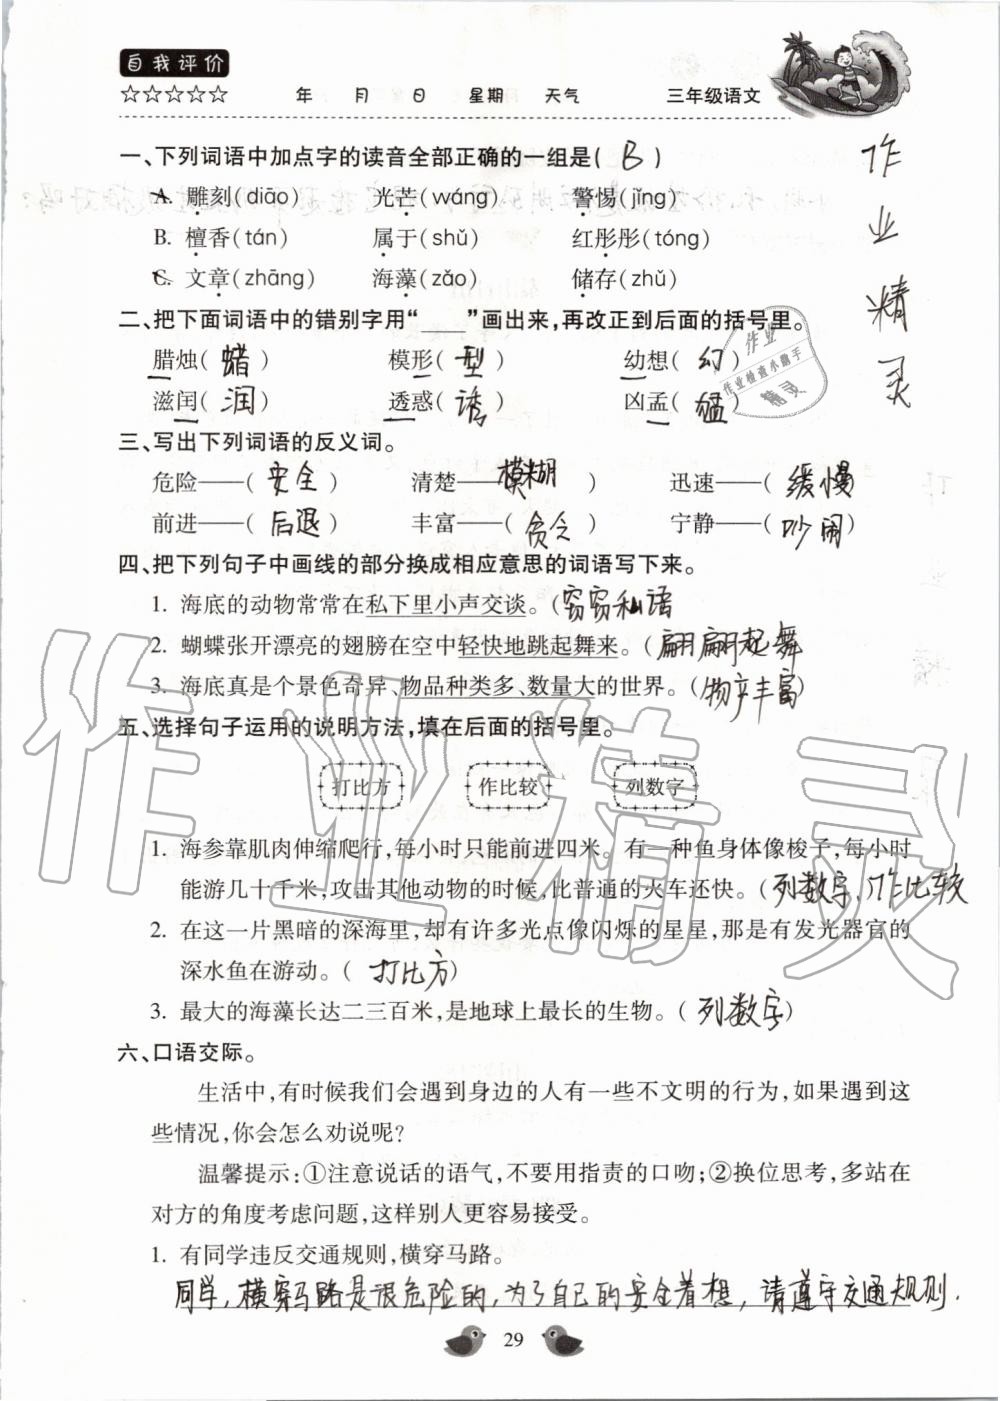 自我评价
☆☆☆☆☆ 年 月 日 星期 天气 三年级语文
一、下列词语中加点字的读音全部正确的一组是( B )
A. 雕刻(diāo) 光芒(wáng) 警惕(jǐng)
B. 檀香(tán) 属于(shǔ) 红彤彤(tóng)
C. 文章(zhāng) 海藻(zǎo) 储存(zhǔ)
二、把下面词语中的错别字用“___”画出来,再改正到后面的括号里。
腊烛( 蜡 ) 模形( 型 ) 幼想( 幻 )
滋闰( 润 ) 透惑( 诱 ) 凶孟( 猛 )
三、写出下列词语的反义词。
危险——( 安全 ) 清楚——( 模糊 ) 迅速——( 缓慢
前进——( 后退 ) 丰富——( 贫乏 ) 宁静——( 吵闹 )
四、把下列句子中画线的部分换成相应意思的词语写下来。
1. 海底的动物常常在私下里小声交谈。(窃窃私语
2. 蝴蝶张开漂亮的翅膀在空中轻快地跳起舞来。(翩翩起舞
3. 海底真是个景色奇异、物品种类多、数量大的世界。(物产丰富)
五、选择句子运用的说明方法,填在后面的括号里。
打比方 作比较 列数字
1. 海参靠肌肉伸缩爬行,每小时只能前进四米。有一种鱼身体像梭子,每小时
能游几十千米,攻击其他动物的时候,比普通的火车还快。(列数字,作比较
2. 在这一片黑暗的深海里,却有许多光点像闪烁的星星,那是有发光器官的
深水鱼在游动。( 打比方)
3. 最大的海藻长达二三百米,是地球上最长的生物。( 列数字)
六、口语交际。
生活中,有时候我们会遇到身边的人有一些不文明的行为,如果遇到这
些情况,你会怎么劝说呢?
温馨提示:①注意说话的语气,不要用指责的口吻;②换位思考,多站在
对方的角度考虑问题,这样别人更容易接受。
1. 有同学违反交通规则,横穿马路。
同学,横穿马路是很危险的,为了自己的安全着想,请遵守交通规则.
29
作业精灵
作业
作业检查小助手
精灵
作业精灵